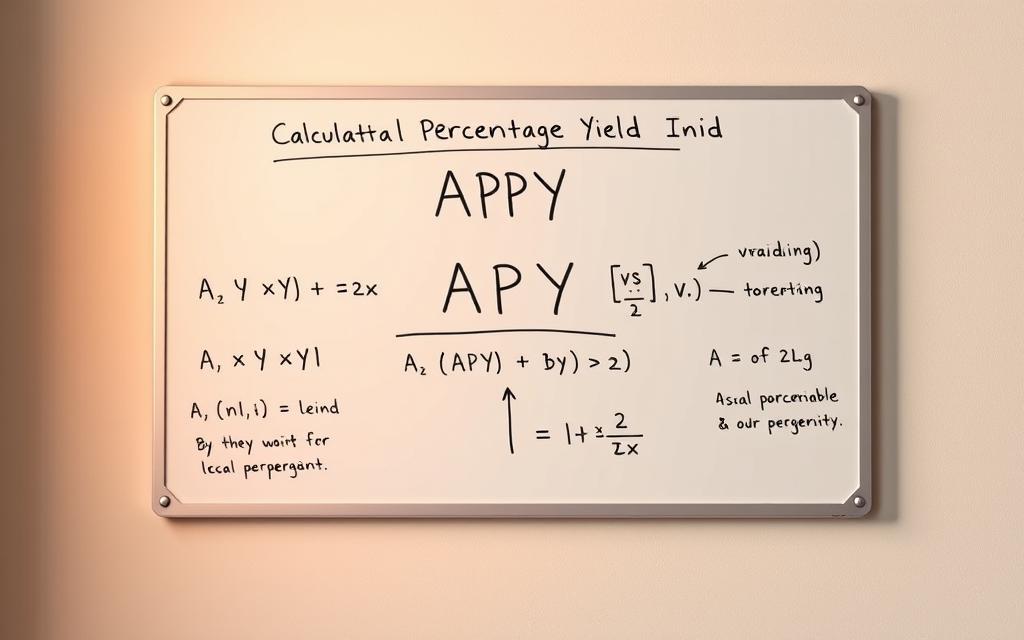 Calculattal Percentage Yield Inid
APPY
A₂ Y ×Y) + =2x
APY
[vs/2], v.) — torerting
vraidiing)
A, × Y ×Y|
A₂ (APY) + by) > 2)
A = of 2Lg
A, (nl,i) = leind
By they woirt for
lccal perpergant.
= |+ × 2/Ix
Asıal porceriable
& our pergenity.